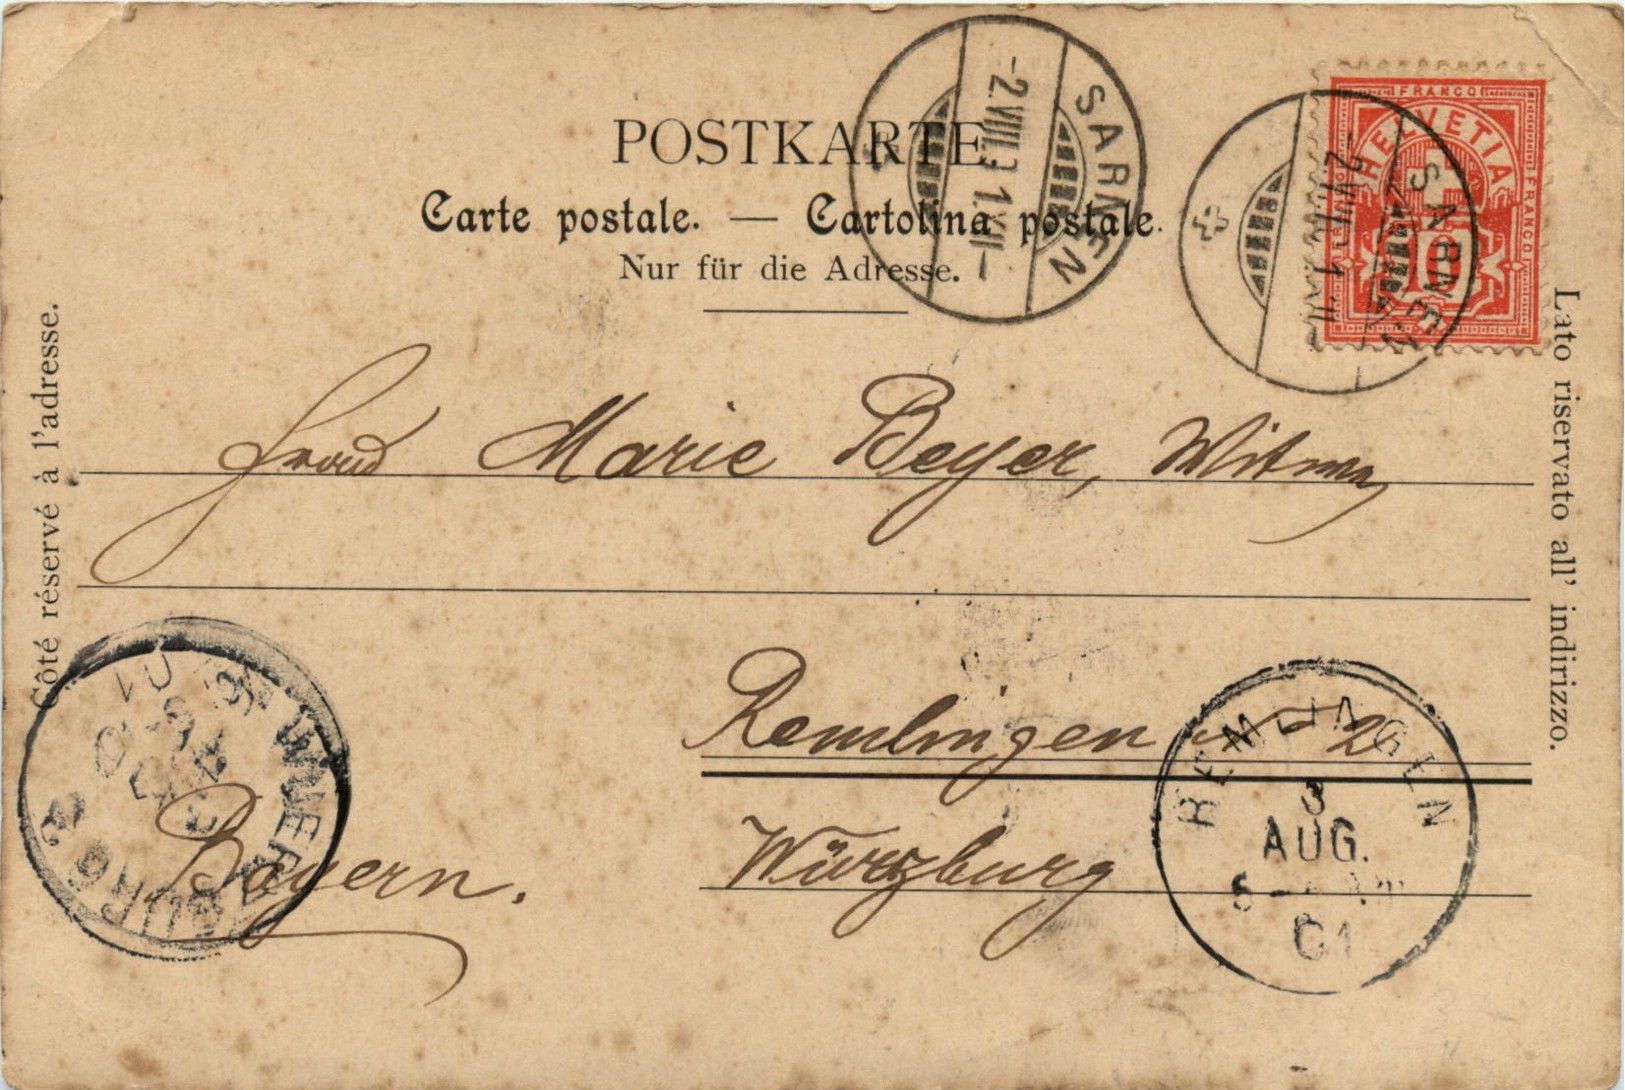 POSTKARTE
Carte postale. — Cartolina postale.
Nur für die Adresse.
Côté réservé à l'adresse.
Lato riservato all' indirizzo.
SARNEN
-2.VIII.01.XII-
FRANCO
HELVETIA
FRANCO
10
SARNEN
-2.VIII.01
Marie Beyer,
Remlingen
Würzburg
Bayern.
REMLINGEN
3
AUG.
01
WUERZBURG 2
01